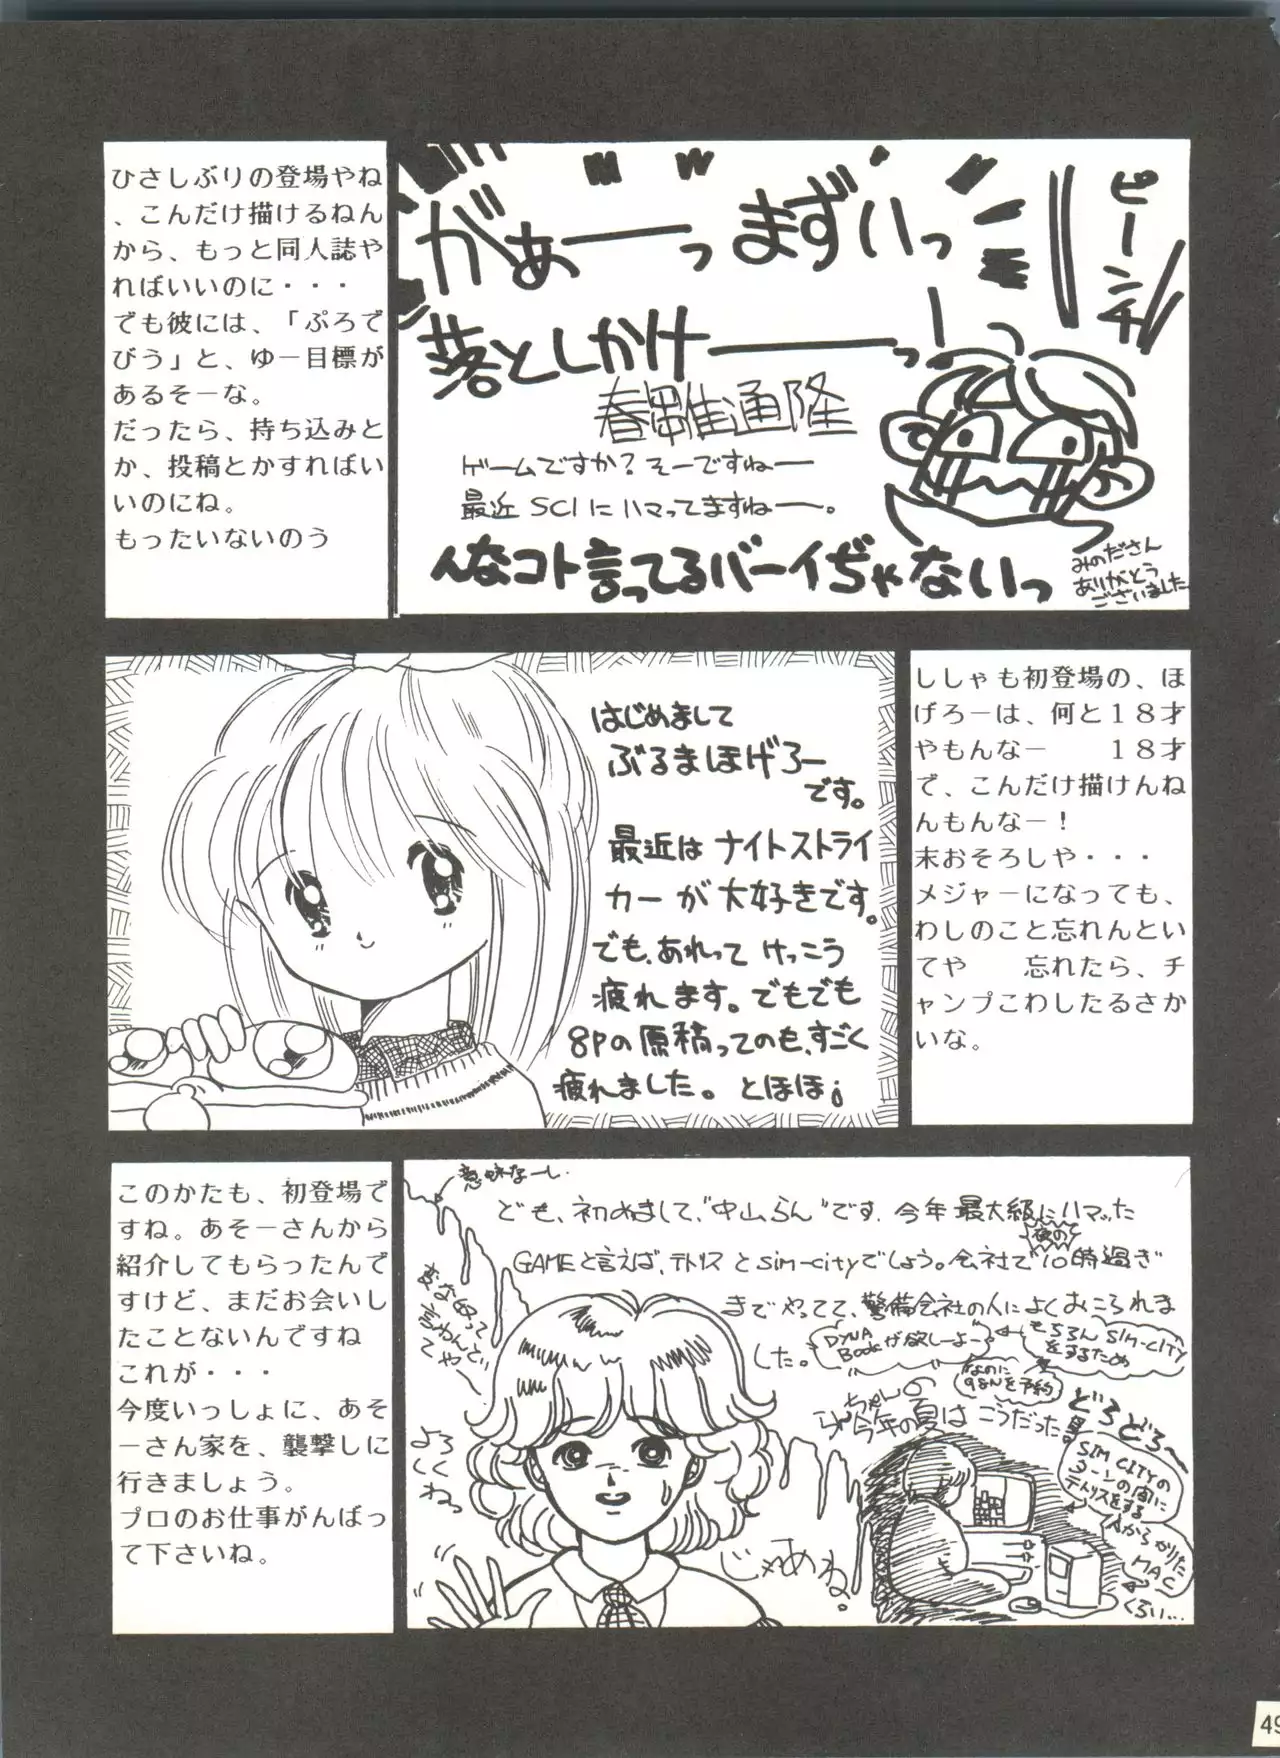 ひさしぶりの登場やね
、こんだけ描けるねん
から、もっと同人誌や
ればいいのに・・・
でも彼には、「ぷろで
びう」と、ゆー目標が
あるそーな。
だったら、持ち込みと
か、投稿とかすればい
いのにね。
もったいないのう
がぁーっ まずいっ
ピーンチ
落としかけーっ!
春雅通隆
ゲームですか?そーですねー
最近 SCIにハマってますねー。
んなコト言ってるバーイぢゃないっ
みのださん
ありがとう
ございました
はじめまして
ぶるまほげろー
です。
最近は ナイトストライ
カー が大好きです。
でも、あれって けっこう
疲れます。でもでも
8Pの原稿ってのも、すごく
疲れました。 とほほ
ししゃも初登場の、ほ
げろーは、何と18才
やもんなー 18才
で、こんだけ描けんね
んもんなー!
末おそろしや・・・
メジャーになっても、
わしのこと忘れんとい
てや 忘れたら、チ
ャンプこわしたるさか
いな。
このかたも、初登場で
すね。あそーさんから
紹介してもらったんで
すけど、まだお会いし
たことないんですね
これが・・・
今度いっしょに、あそ
ーさん家を、襲撃しに
行きましょう。
プロのお仕事がんばっ
て下さいね。
意味なーし.
ども、初めまして、"中山らん"です. 今年最大級にハマった
GAMEと言えば、テトリスとsim-cityでしょう。会社で夜の10時過ぎ
までやってて、警備会社の人によくおこられま
した。
DYNA
Bookが欲しーよー
もちろんSIM-CITY
をするため
なのに
98Nを予約
らんちゃんの
今年の夏は こうだった。
どろどろ〜
SIM CITYの
ターンの間に
テトリスをする
Aからかりた
MAC
くらい...
変な奴って
言わんで
てや
よろ
しく
ねっ
じゃあね。